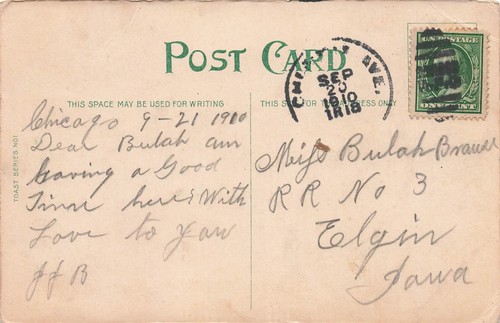 POST CARD
THIS SPACE MAY BE USED FOR WRITING
THIS SPACE FOR ADDRESS ONLY
TOAST SERIES NO1
SEP
1910
AVE.
U.S. POSTAGE
ONE CENT
Chicago 9-21 1910
Dear Bulah am
having a Good
Time here With
Love to You
J J B
Miss Bulah
R R No 3
Elgin
Iowa